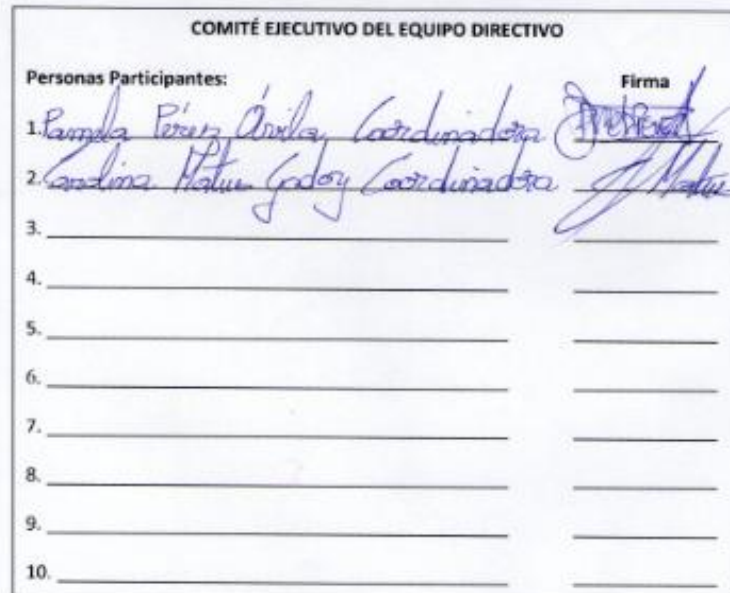 COMITÉ EJECUTIVO DEL EQUIPO DIRECTIVO
Personas Participantes: Firma
1. Pamela Pérez Ávila, Coordinadora
2. Carolina Matus Godoy Coordinadora Matus
3.
4.
5.
6.
7.
8.
9.
10.